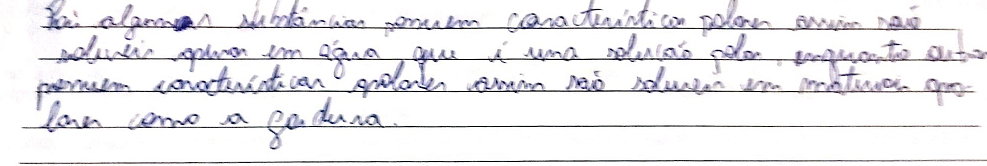 Pois algumas substâncias possuem características polares assim são
solúveis apenas em água que é uma solução polar, enquanto outras
possuem características apolares assim são solúveis em matérias apo-
lares como a gordura.